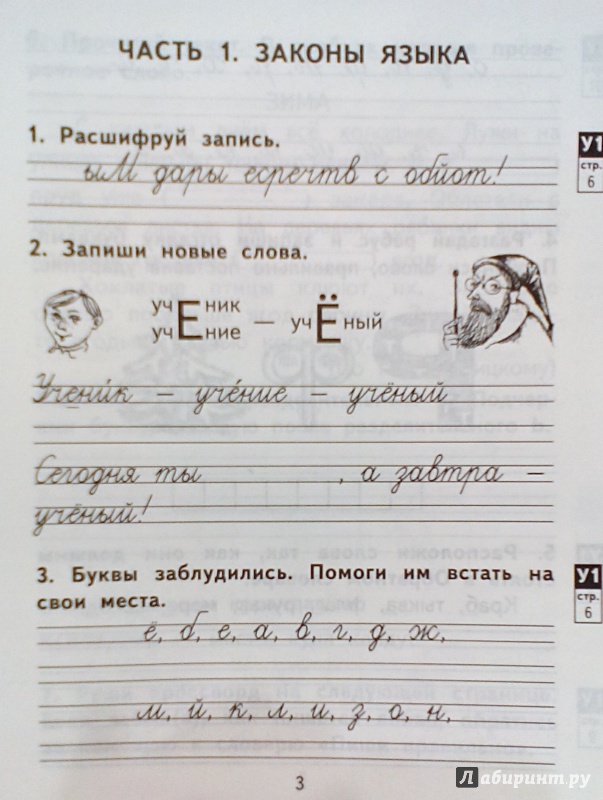 ЧАСТЬ 1. ЗАКОНЫ ЯЗЫКА
1. Расшифруй запись.
У1
стр.
6
ыМ дары есречтв с обйот!
2. Запиши новые слова.
учЕник
учЕние — учЁный
Учени́к — уче́ние — учёный
Сегодня ты , а завтра –
учёный!
3. Буквы заблудились. Помоги им встать на
свои места.
У1
стр.
6
ё, б, е, а, в, г, д, ж,
м, й, к, л, и, з, о, н,
3
Лабиринт.ру